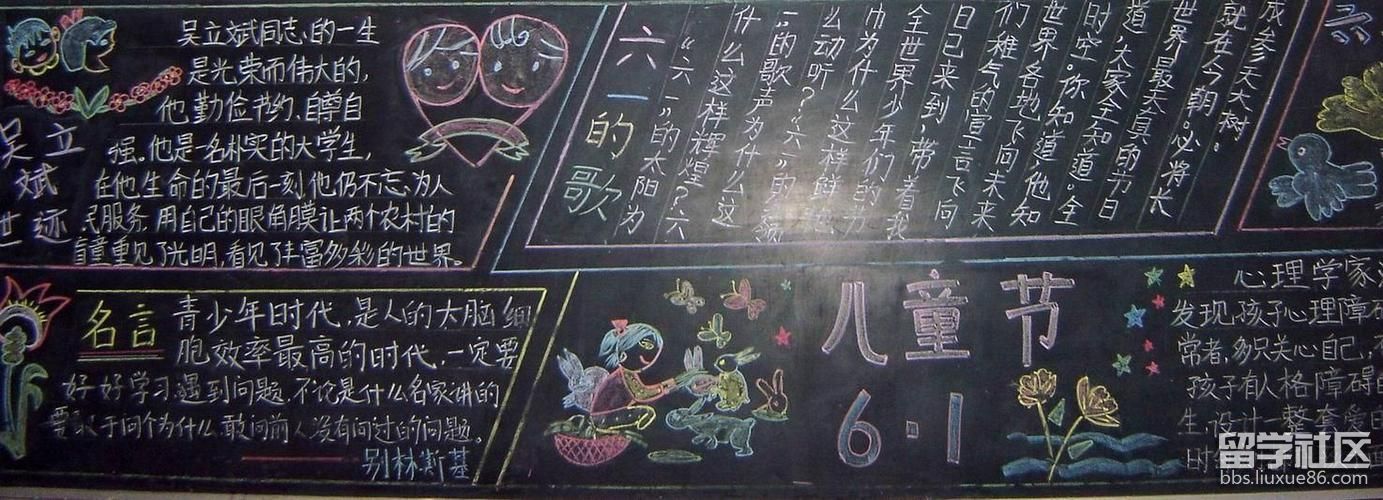 吴立斌世迹
吴立斌同志的一生
是光荣而伟大的,
他勤俭节约、自尊自
强。他是一名朴实的大学生,
在他生命的最后一刻他仍不忘为人
民服务,用自己的眼角膜让两个农村的
盲童重见了光明,看见了丰富多彩的世界。
六一的歌
“六一”的太阳为
什么这样辉煌?六
一”的歌声为什么这
么动听?“六一”的
巾为什么这样鲜
全世界少年们的为
日已来到,带着我
们稚气的宣言飞向
世界各地飞向未来
时空。你知道,他知
道,大家全知道。全
世界最天真的节日
就在今朝。必将长
成参天大树。
名言
青少年时代,是人的大脑细
胞效率最高的时代,一定要
好好学习,遇到问题,不论是什么名家讲的
要敢于问个为什么,敢问前人没有问过的问题。
别林斯基
儿童节
6·1
心理学家
发现,孩子心理障碍
常者,多只关心自己,不
孩子有人格障碍的
生,设计一整套爱的
时
留学社区
bbs.liuxue86.com